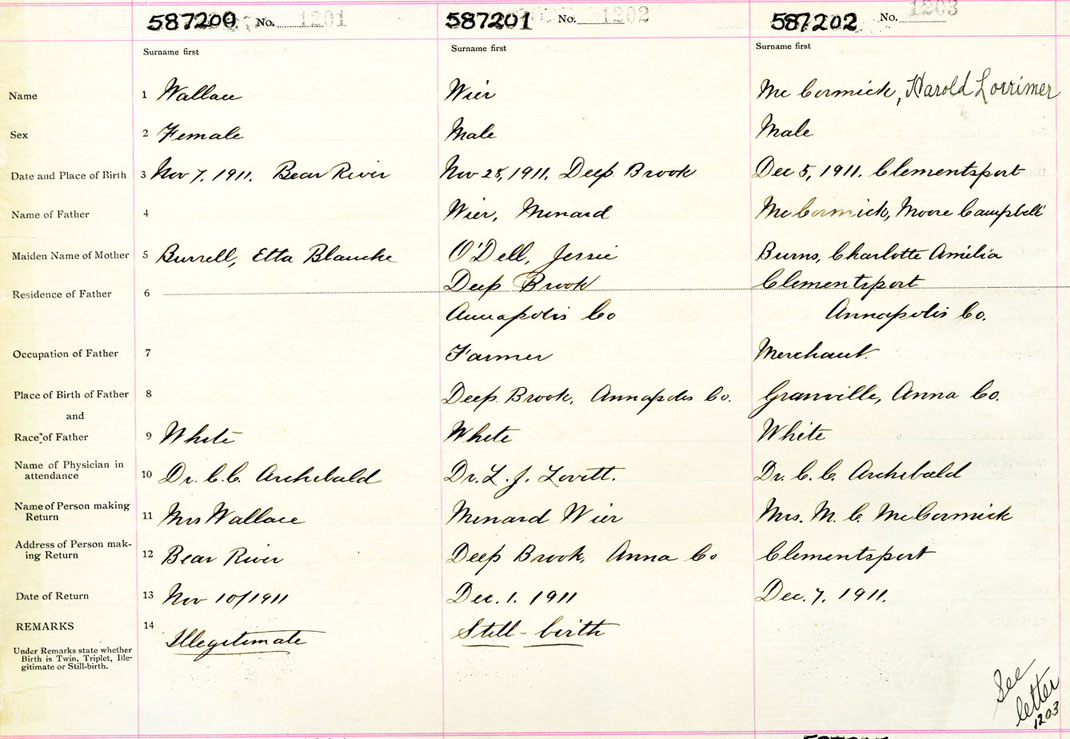 587200 No. 1201 587201 No. 1202 587202 No. 1203
Surname first Surname first Surname first
Name 1 Wallace Wier McCormick, Harold Lorrimer
Sex 2 Female Male Male
Date and Place of Birth 3 Nov 7. 1911. Bear River Nov 25, 1911. Deep Brook Dec 5, 1911. Clementsport
Name of Father 4 Wier, Menard McCormick, Moore Campbell
Maiden Name of Mother 5 Burrell, Etta Blanche O'Dell, Jessie Burns, Charlotte Amilia
Residence of Father 6 Deep Brook Clementsport
Annapolis Co Annapolis Co.
Occupation of Father 7 Farmer Merchant.
Place of Birth of Father 8 Deep Brook, Annapolis Co. Granville, Anna Co.
and
Race of Father 9 White White White
Name of Physician in
attendance 10 Dr. C.C. Archibald Dr. L. J. Lovett. Dr. C. C. Archibald
Name of Person making
Return 11 Mrs Wallace Menard Wier Mrs. M. C. McCormick
Address of Person mak-
ing Return 12 Bear River Deep Brook, Anna Co Clementsport
Date of Return 13 Nov 10/1911 Dec. 1. 1911 Dec. 7. 1911.
REMARKS 14 Illegitimate Still-birth
Under Remarks state whether
Birth is Twin, Triplet, Ille-
gitimate or Still-birth.
See
letter
1203